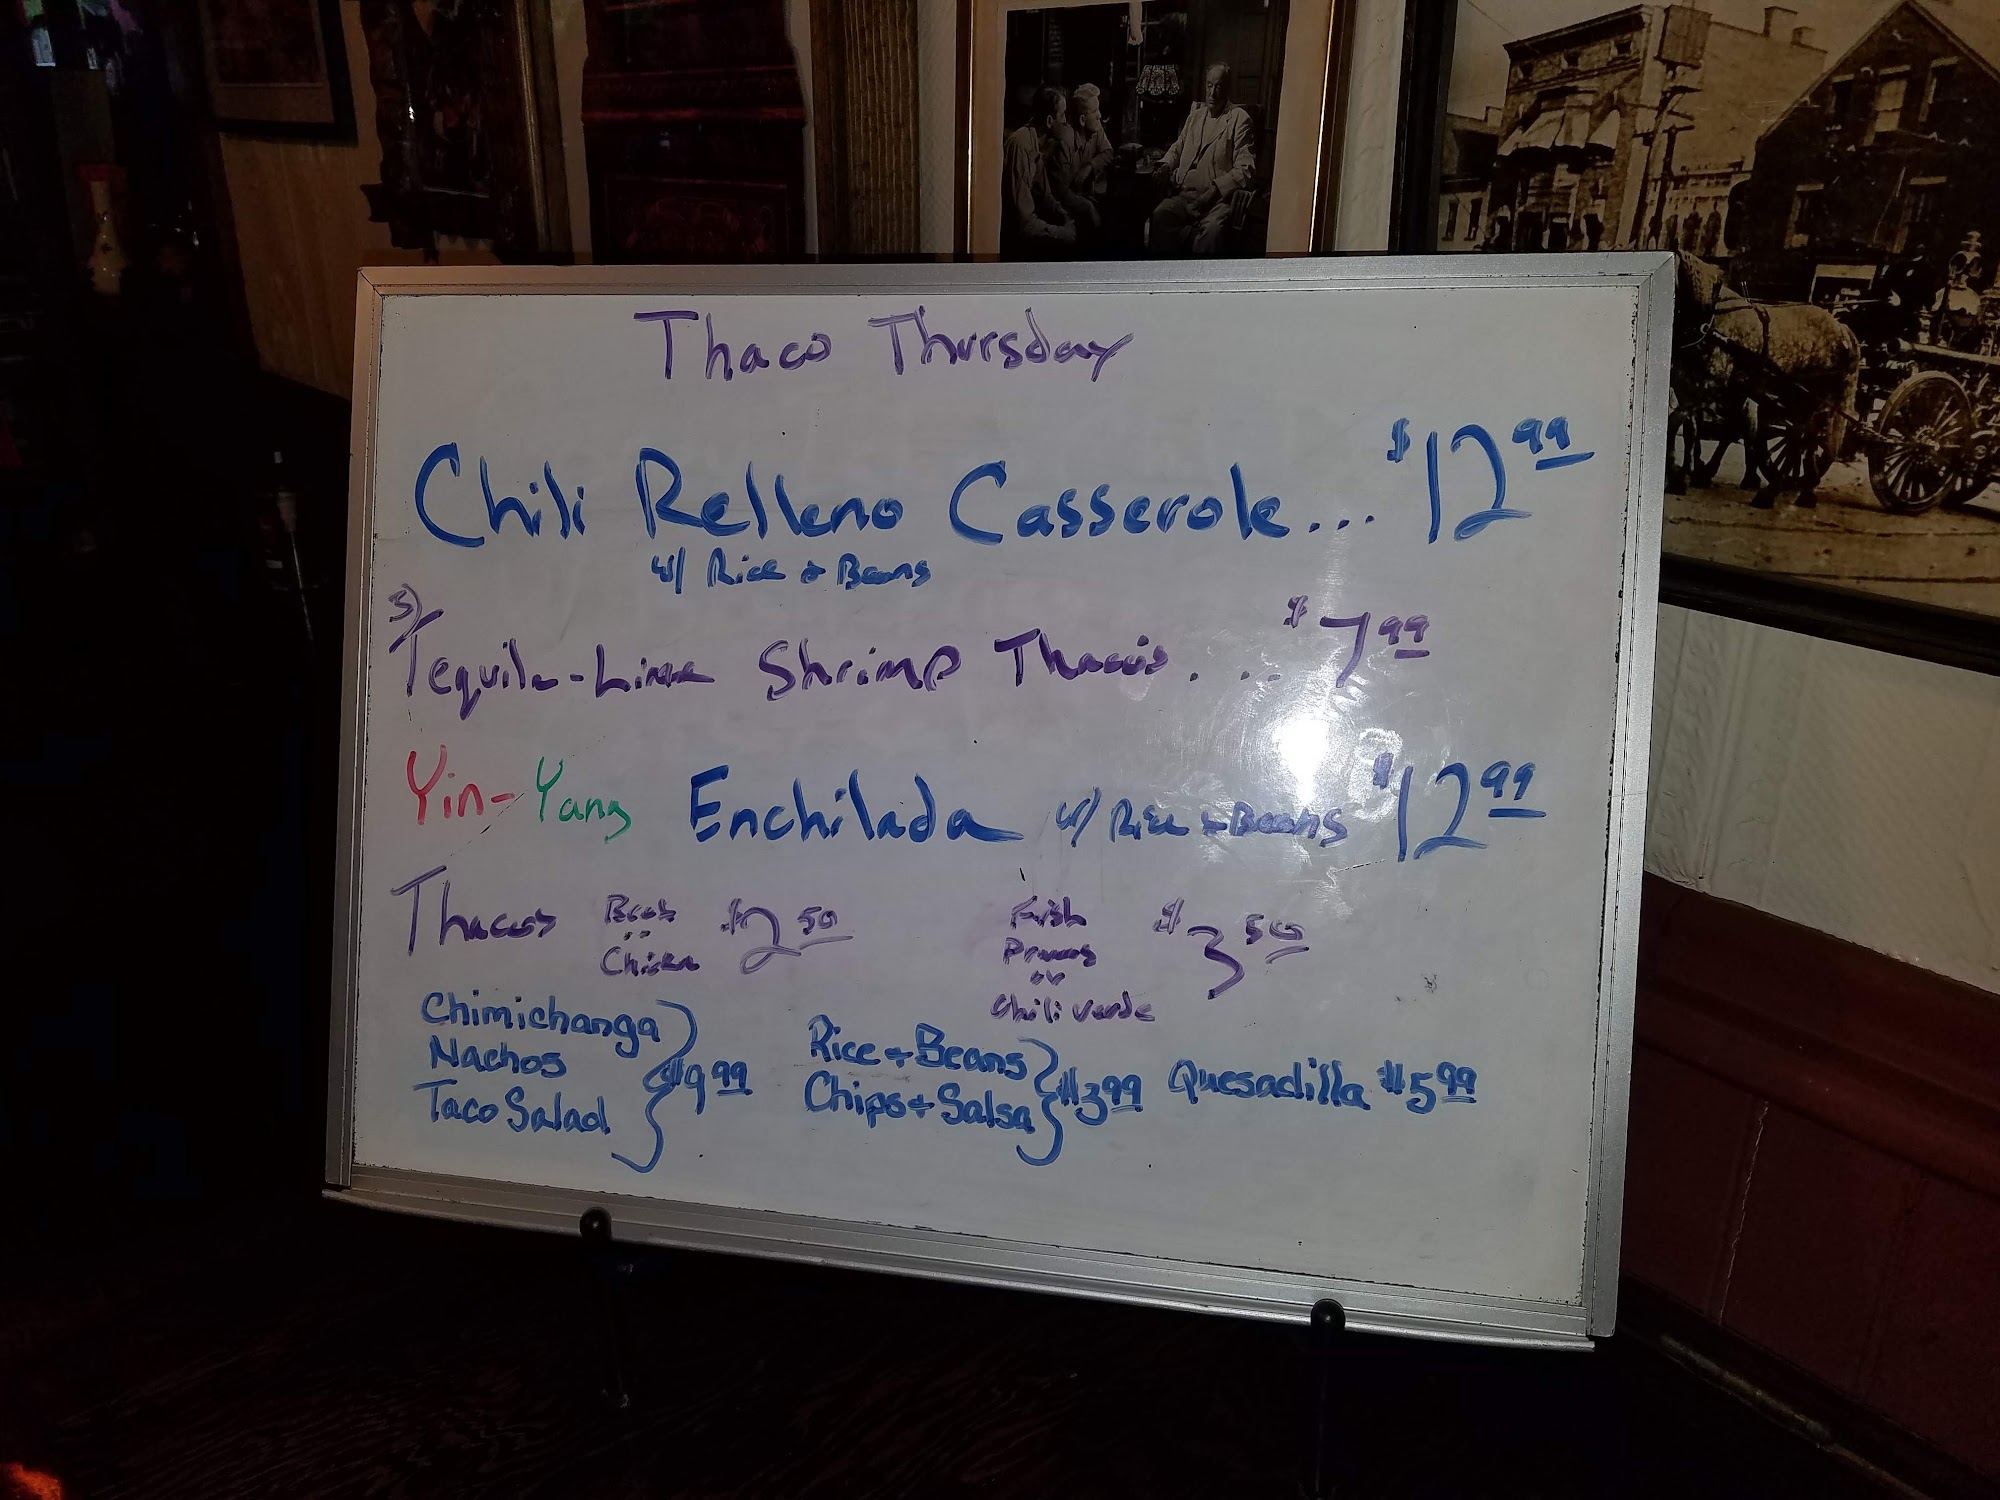 Thaco Thursday
Chili Relleno Casserole... $12.99
w/ Rice + Beans
3/
Tequila-Lime Shrimp Thacos.... $7.99
Yin-Yang Enchilada w/ Rice + Beans $12.99
Thacos
Chicken
$2.50
Fish
Prawns
or
Chili Verde
$3.50
Chimichanga
Nachos
Taco Salad
$9.99
Rice + Beans
Chips + Salsa
$3.99
Quesadilla $5.99